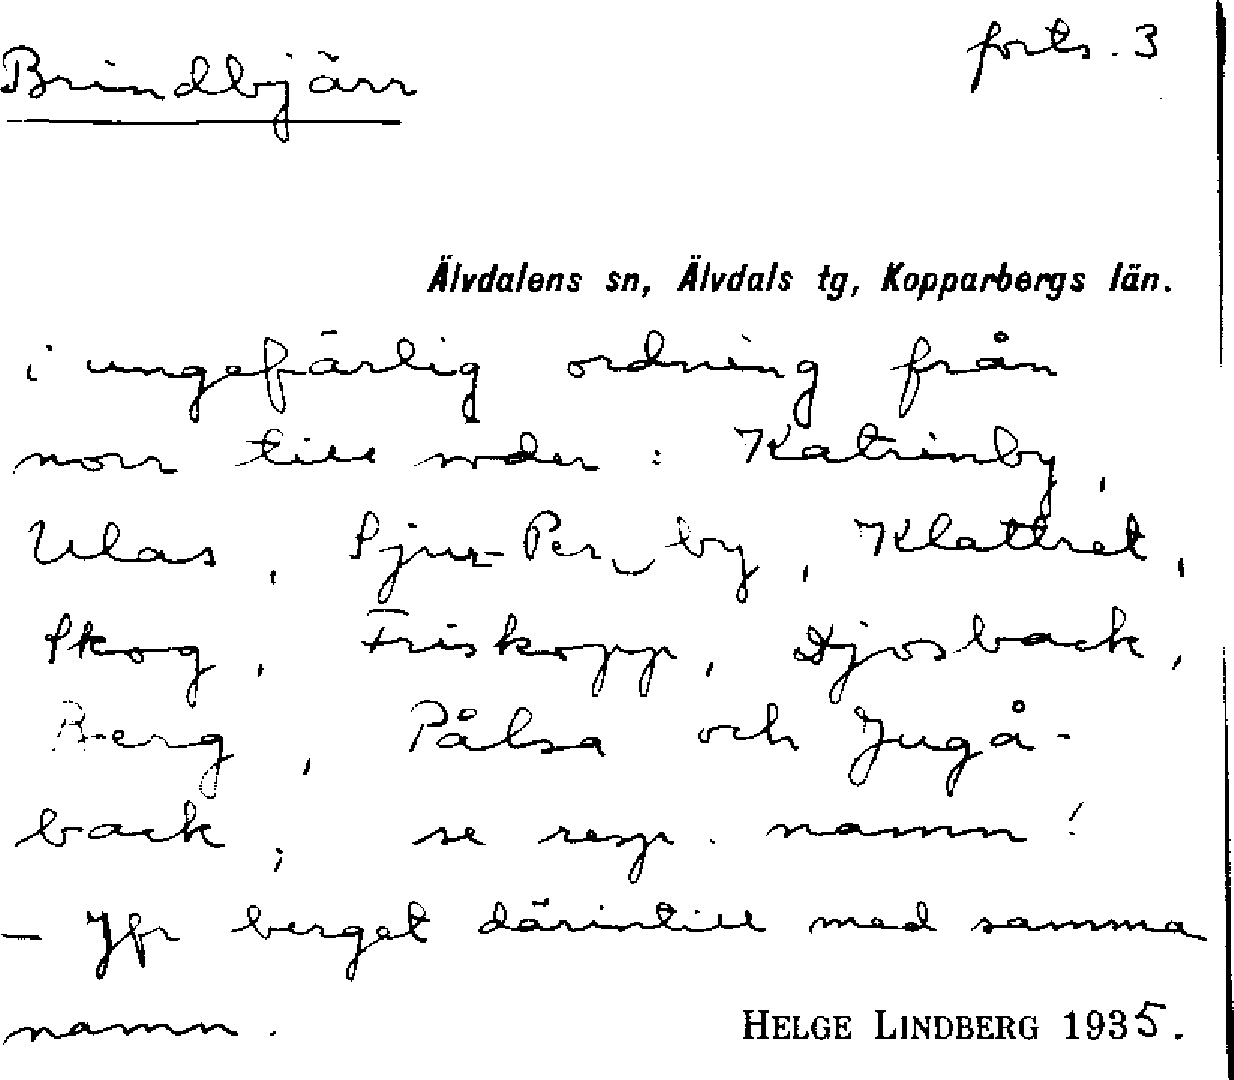 Brindbjärr
forts. 3
Älvdalens sn, Älvdals tg, Kopparbergs län.
i ungefärlig ordning från
norr till söder : Katrinby,
Ulas, Sjur-Per by, Klattret,
Skog, Friskopp, Djosback,
Berg, Pålsa och Jugå-
back; se resp. namn!
– Jfr berget därintill med samma
namn.
HELGE LINDBERG 1935.